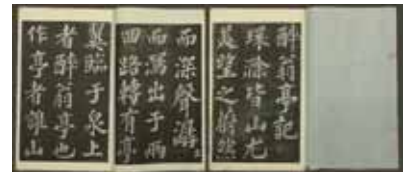 醉翁亭記
環滁皆山尤
美望之蔚然
而深聲潺
而瀉出于兩
回路轉有亭
翼臨于泉上
者醉翁亭也
作亭者誰山